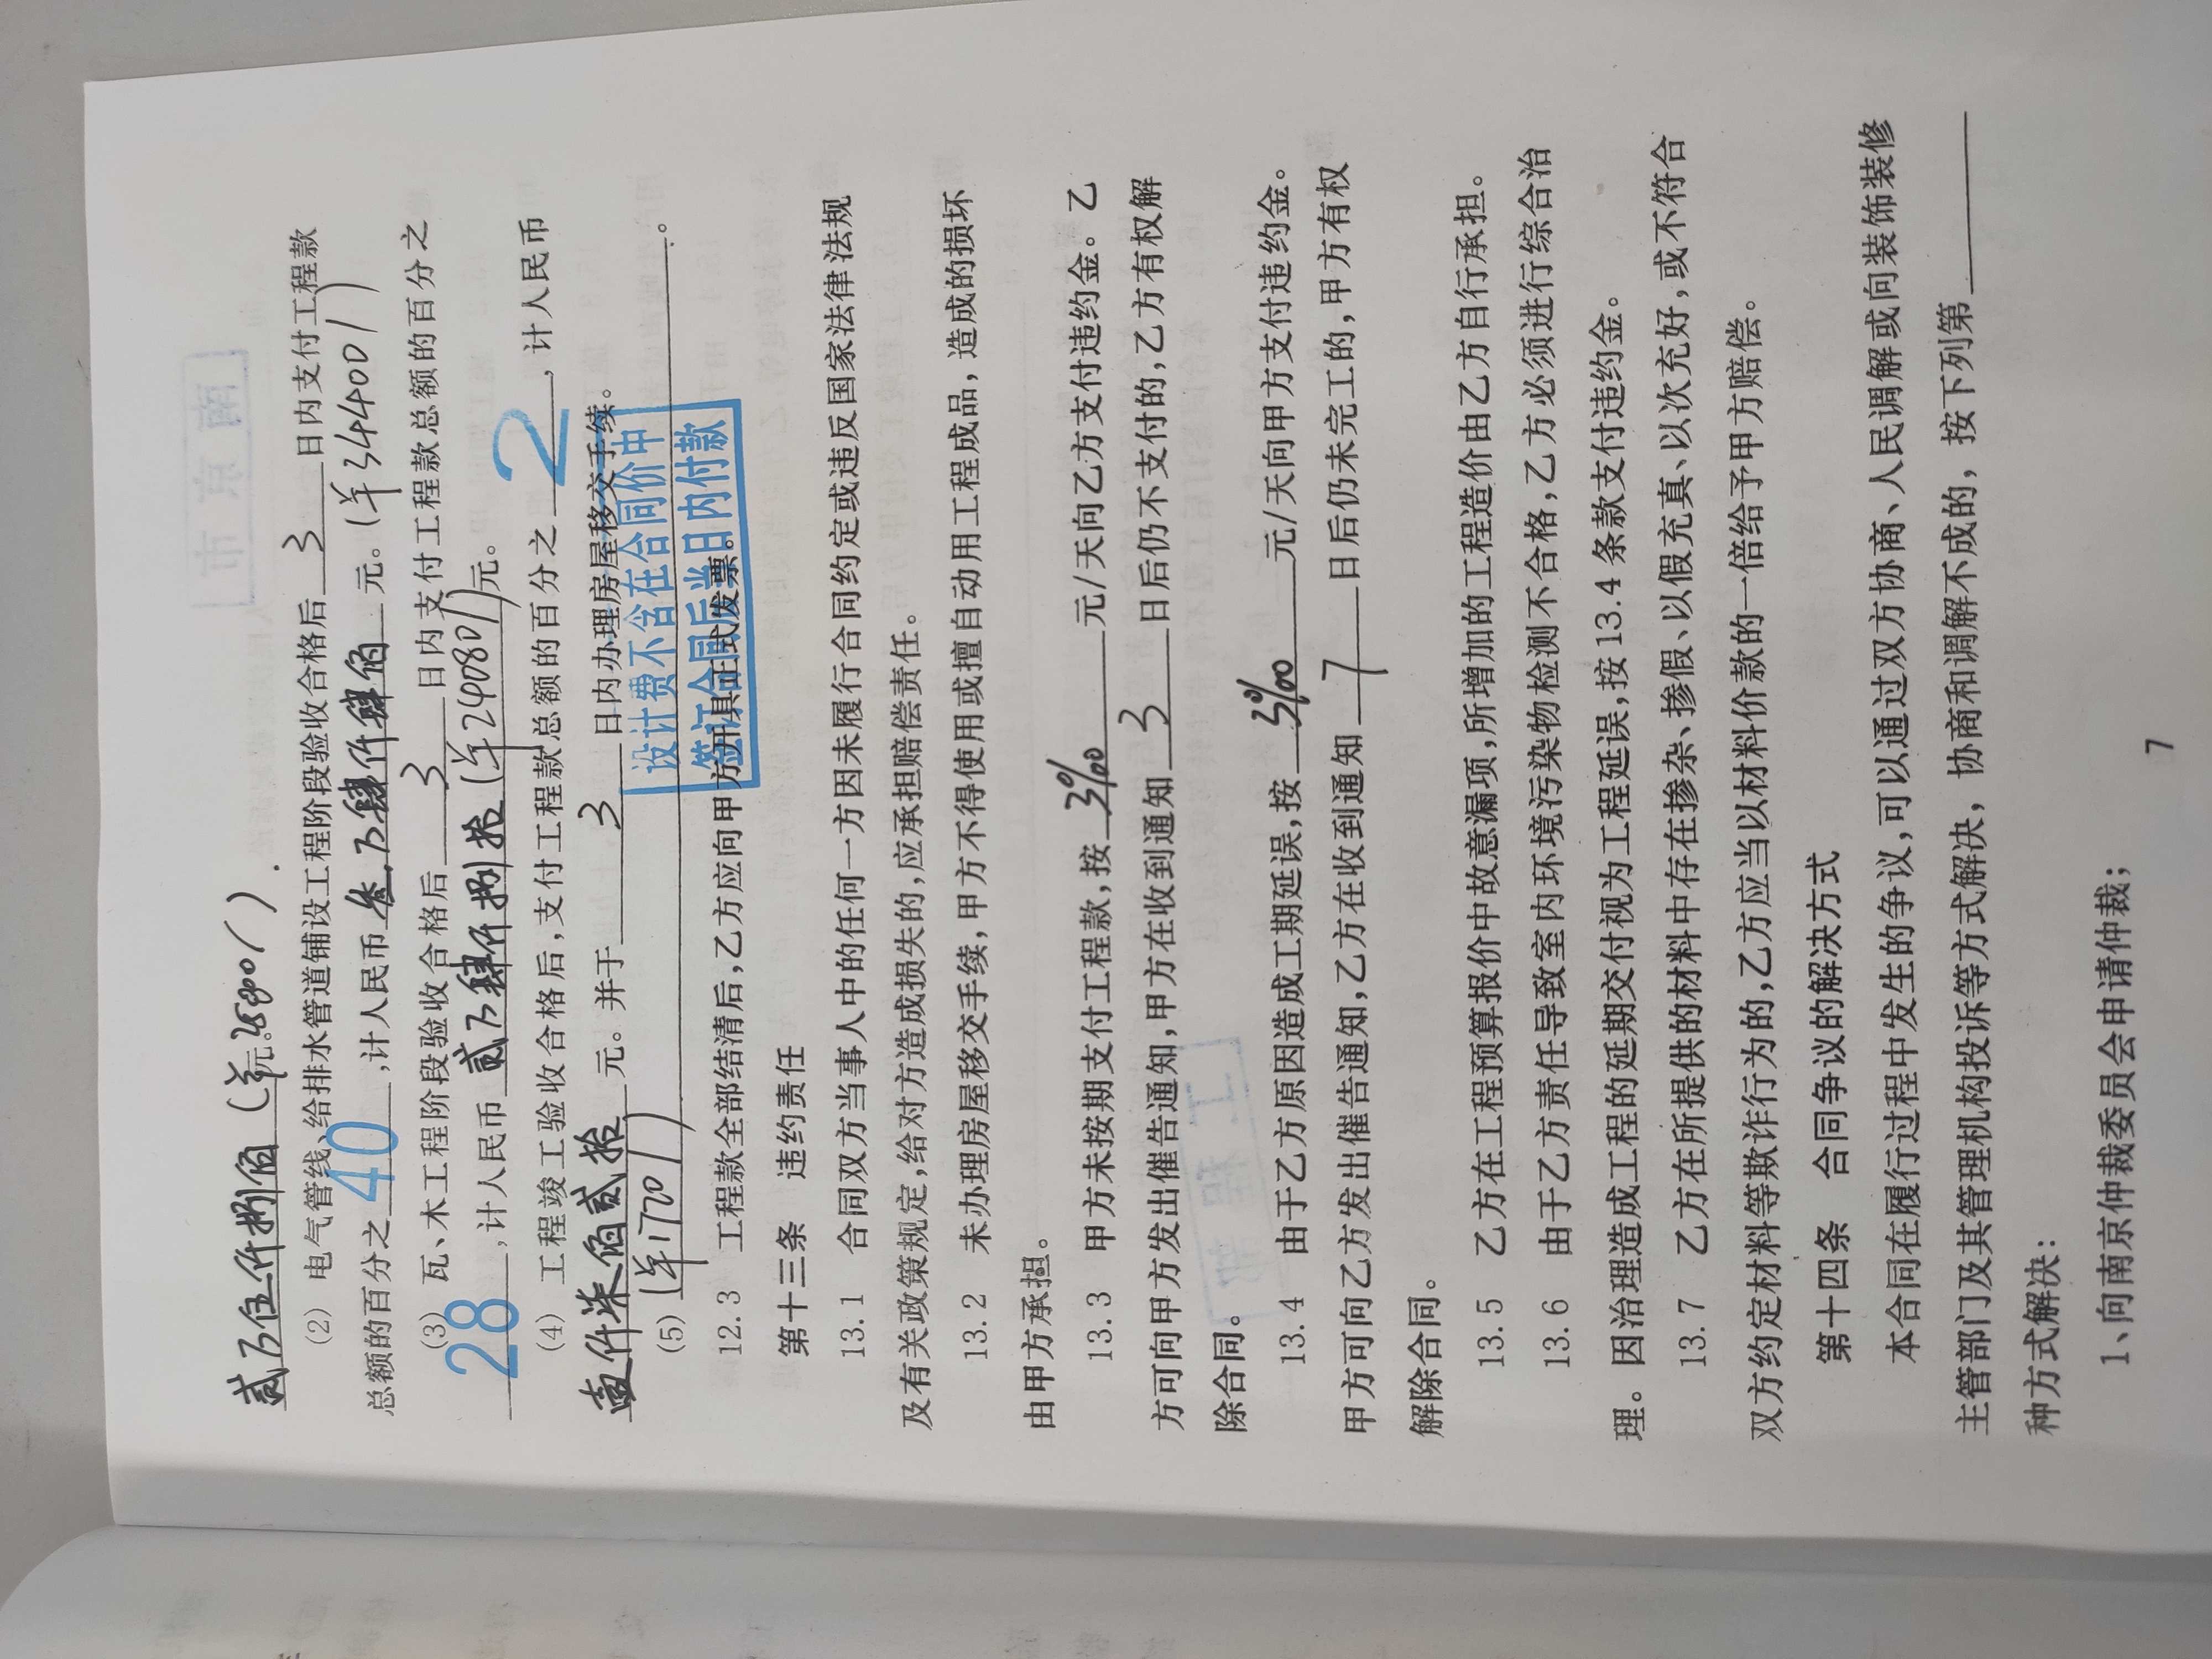 贰万伍仟捌佰(羊元.25800/)．
(2) 电气管线、给排水管道铺设工程阶段验收合格后 3 日内支付工程款
总额的百分之 40 ,计人民币 叁万肆仟肆佰 元。(羊34400/)
(3) 瓦、木工程阶段验收合格后 3 日内支付工程款总额的百分之
28 ,计人民币 贰万肆仟捌拾(羊24080/)元。
(4) 工程竣工验收合格后,支付工程款总额的百分之 2 ,计人民币
壹仟柒佰贰拾 元。并于 3 日内办理房屋移交手续。
(5) (羊1720/) 。
设计费不含在合同价中
签订合同后当日内付款
12.3 工程款全部结清后,乙方应向甲方开具正式发票。
第十三条 违约责任
13.1 合同双方当事人中的任何一方因未履行合同约定或违反国家法律法规
及有关政策规定,给对方造成损失的,应承担赔偿责任。
13.2 未办理房屋移交手续,甲方不得使用或擅自动用工程成品，造成的损坏
由甲方承担。
13.3 甲方未按期支付工程款,按 3‰ 元/天向乙方支付违约金。乙
方可向甲方发出催告通知,甲方在收到通知 3 日后仍不支付的,乙方有权解
除合同。
13.4 由于乙方原因造成工期延误,按 3‰ 元/天向甲方支付违约金。
甲方可向乙方发出催告通知,乙方在收到通知 7 日后仍未完工的,甲方有权
解除合同。
13.5 乙方在工程预算报价中故意漏项,所增加的工程造价由乙方自行承担。
13.6 由于乙方责任导致室内环境污染物检测不合格,乙方必须进行综合治
理。因治理造成工程的延期交付视为工程延误,按13.4条款支付违约金。
13.7 乙方在所提供的材料中存在掺杂、掺假、以假充真、以次充好,或不符合
双方约定材料等欺诈行为的,乙方应当以材料价款的一倍给予甲方赔偿。
第十四条 合同争议的解决方式
本合同在履行过程中发生的争议,可以通过双方协商、人民调解或向装饰装修
主管部门及其管理机构投诉等方式解决，协商和调解不成的，按下列第
种方式解决:
1、向南京仲裁委员会申请仲裁;
7